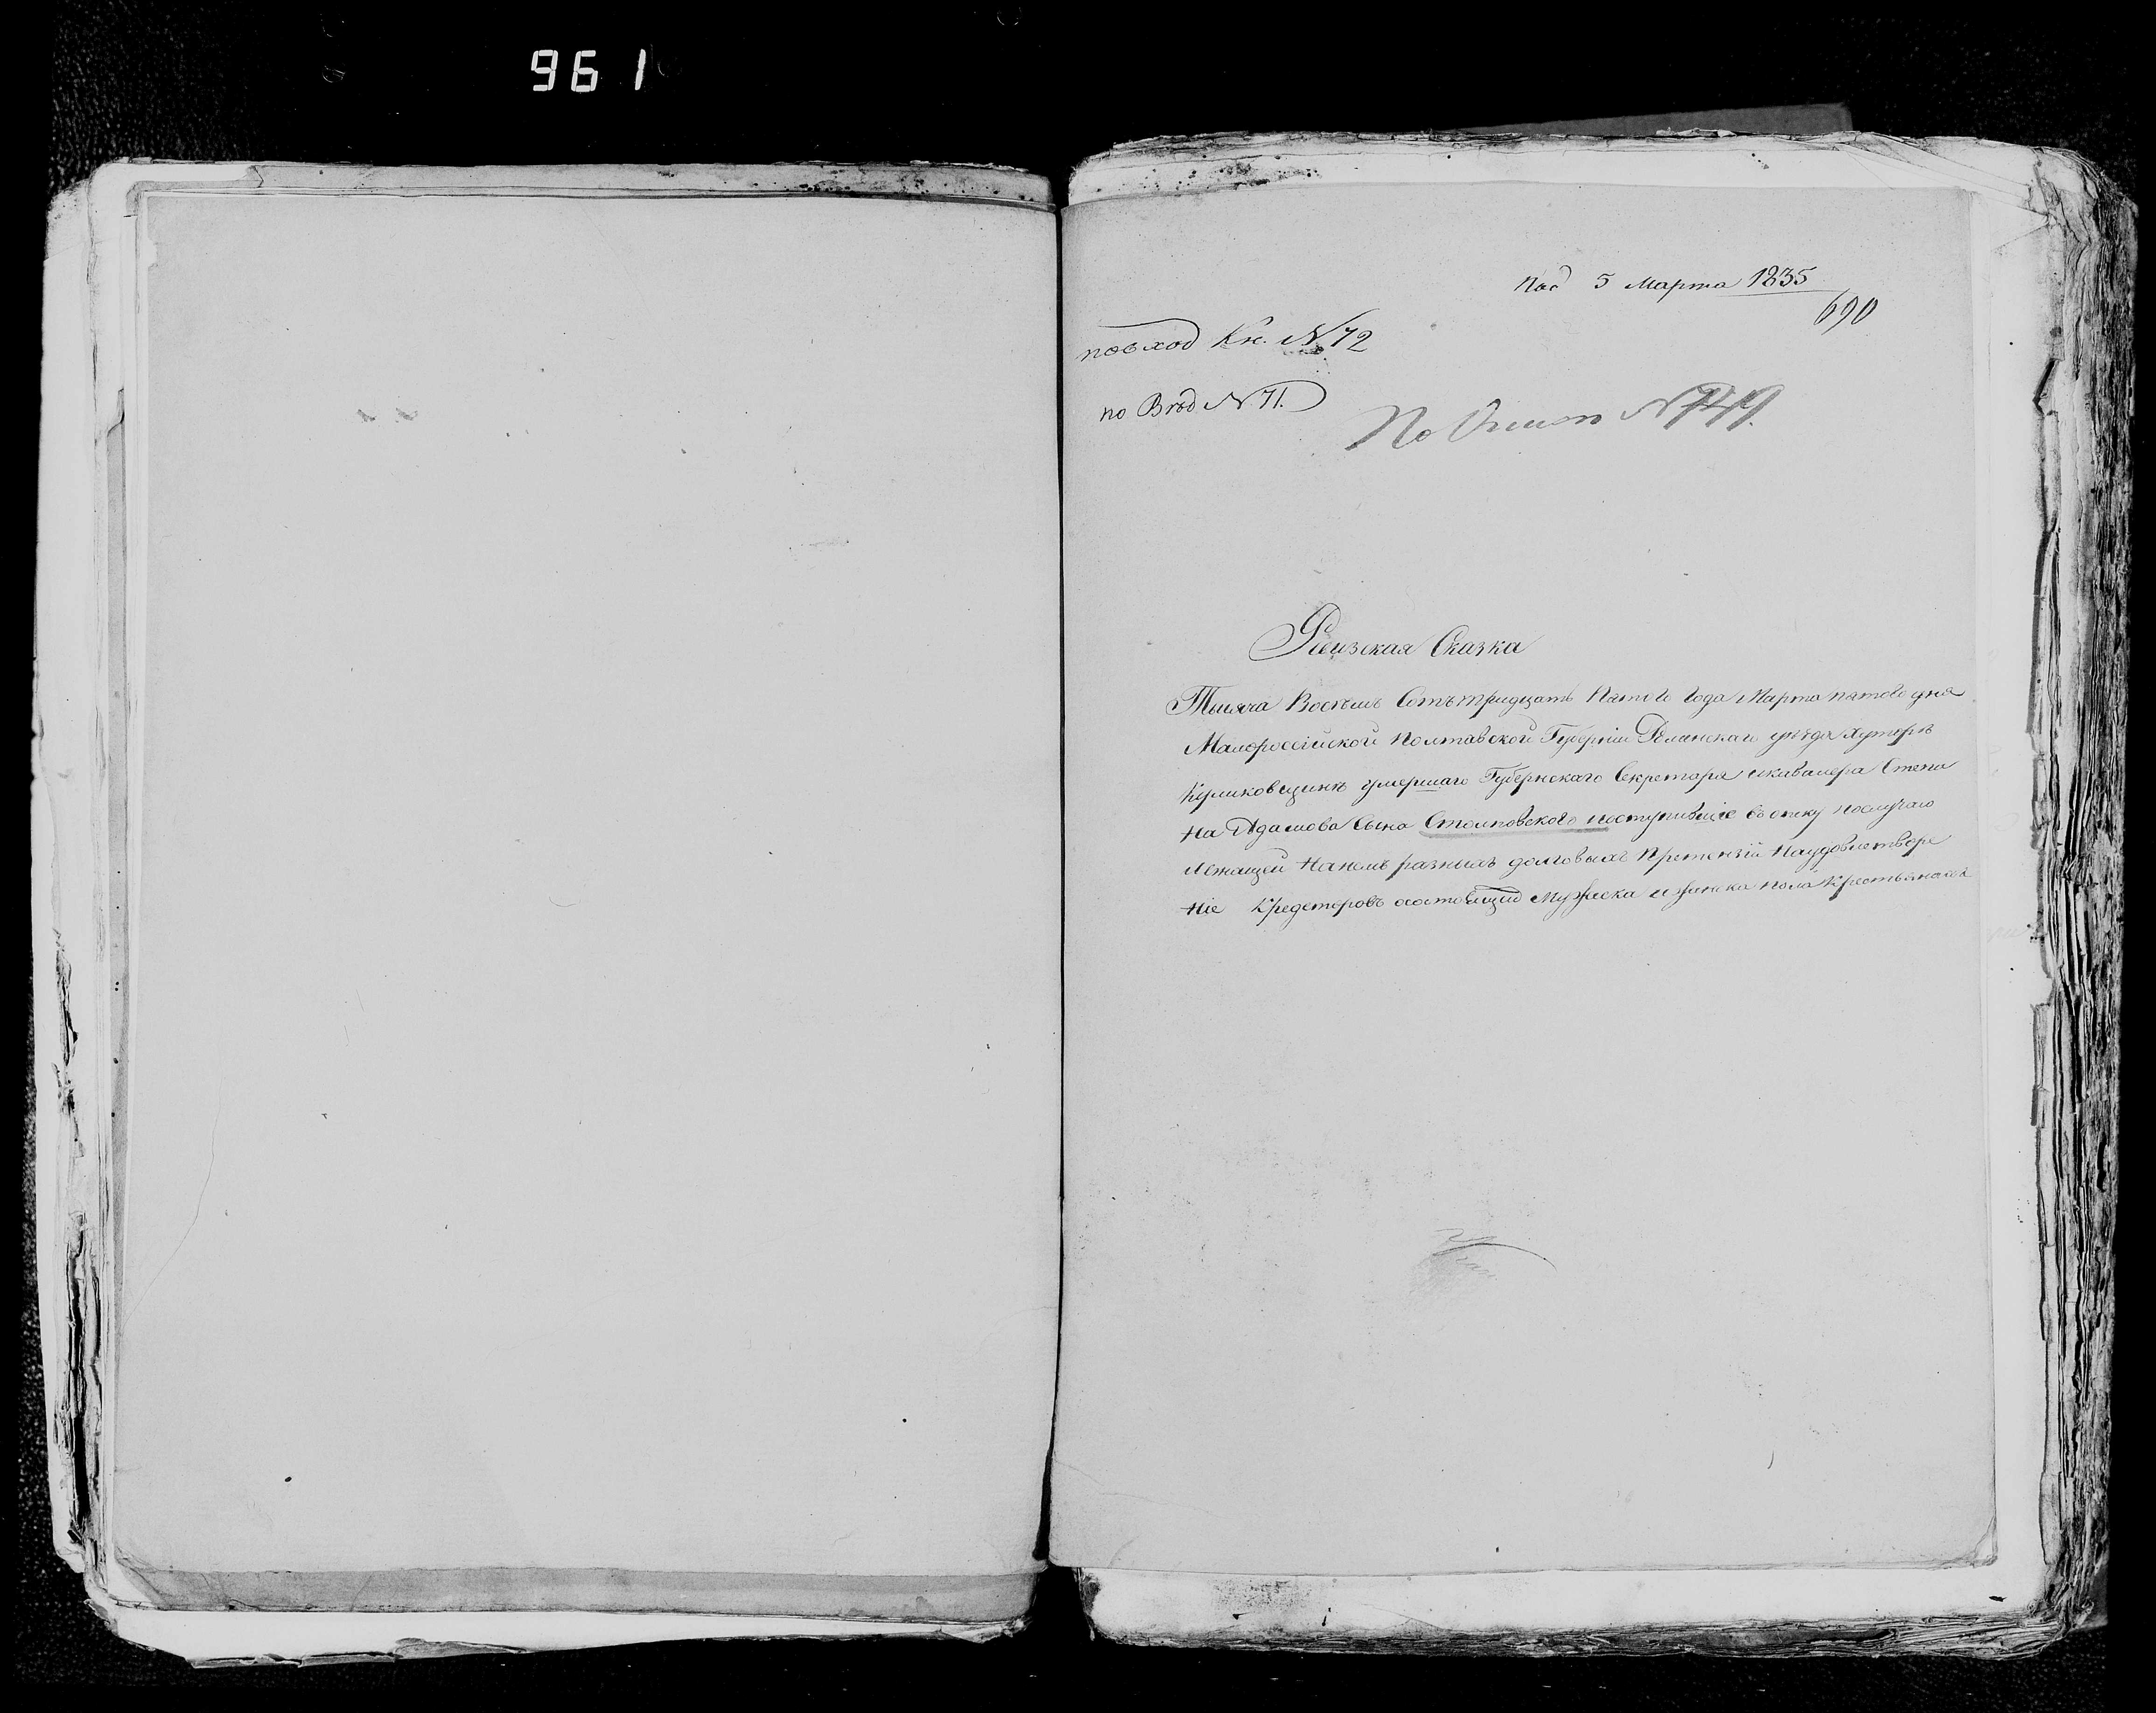 961
Под 5 Марта 1835
690
по вход Кн. № 72
по Вѣд № 71.
По Описи № 749.
Ревизская Сказка
Тысяча Восемь Сотъ тридцать Пятого Года Марта пятого дня
Малороссійской Полтавской Губерніи Роменскаго уѣзда Хуторѣ
Куликовщинѣ умершаго Губернскаго Секретаря икавалера Степа
На Адамова Сына Столповского поступившіе въ опеку послучаю
Лежащей Нанемъ разныхъ долговыхъ Претензій Наудовлетворе
Ніе Кредеторовъ осостоящид Мужеска и женска пола Крестьянахъ